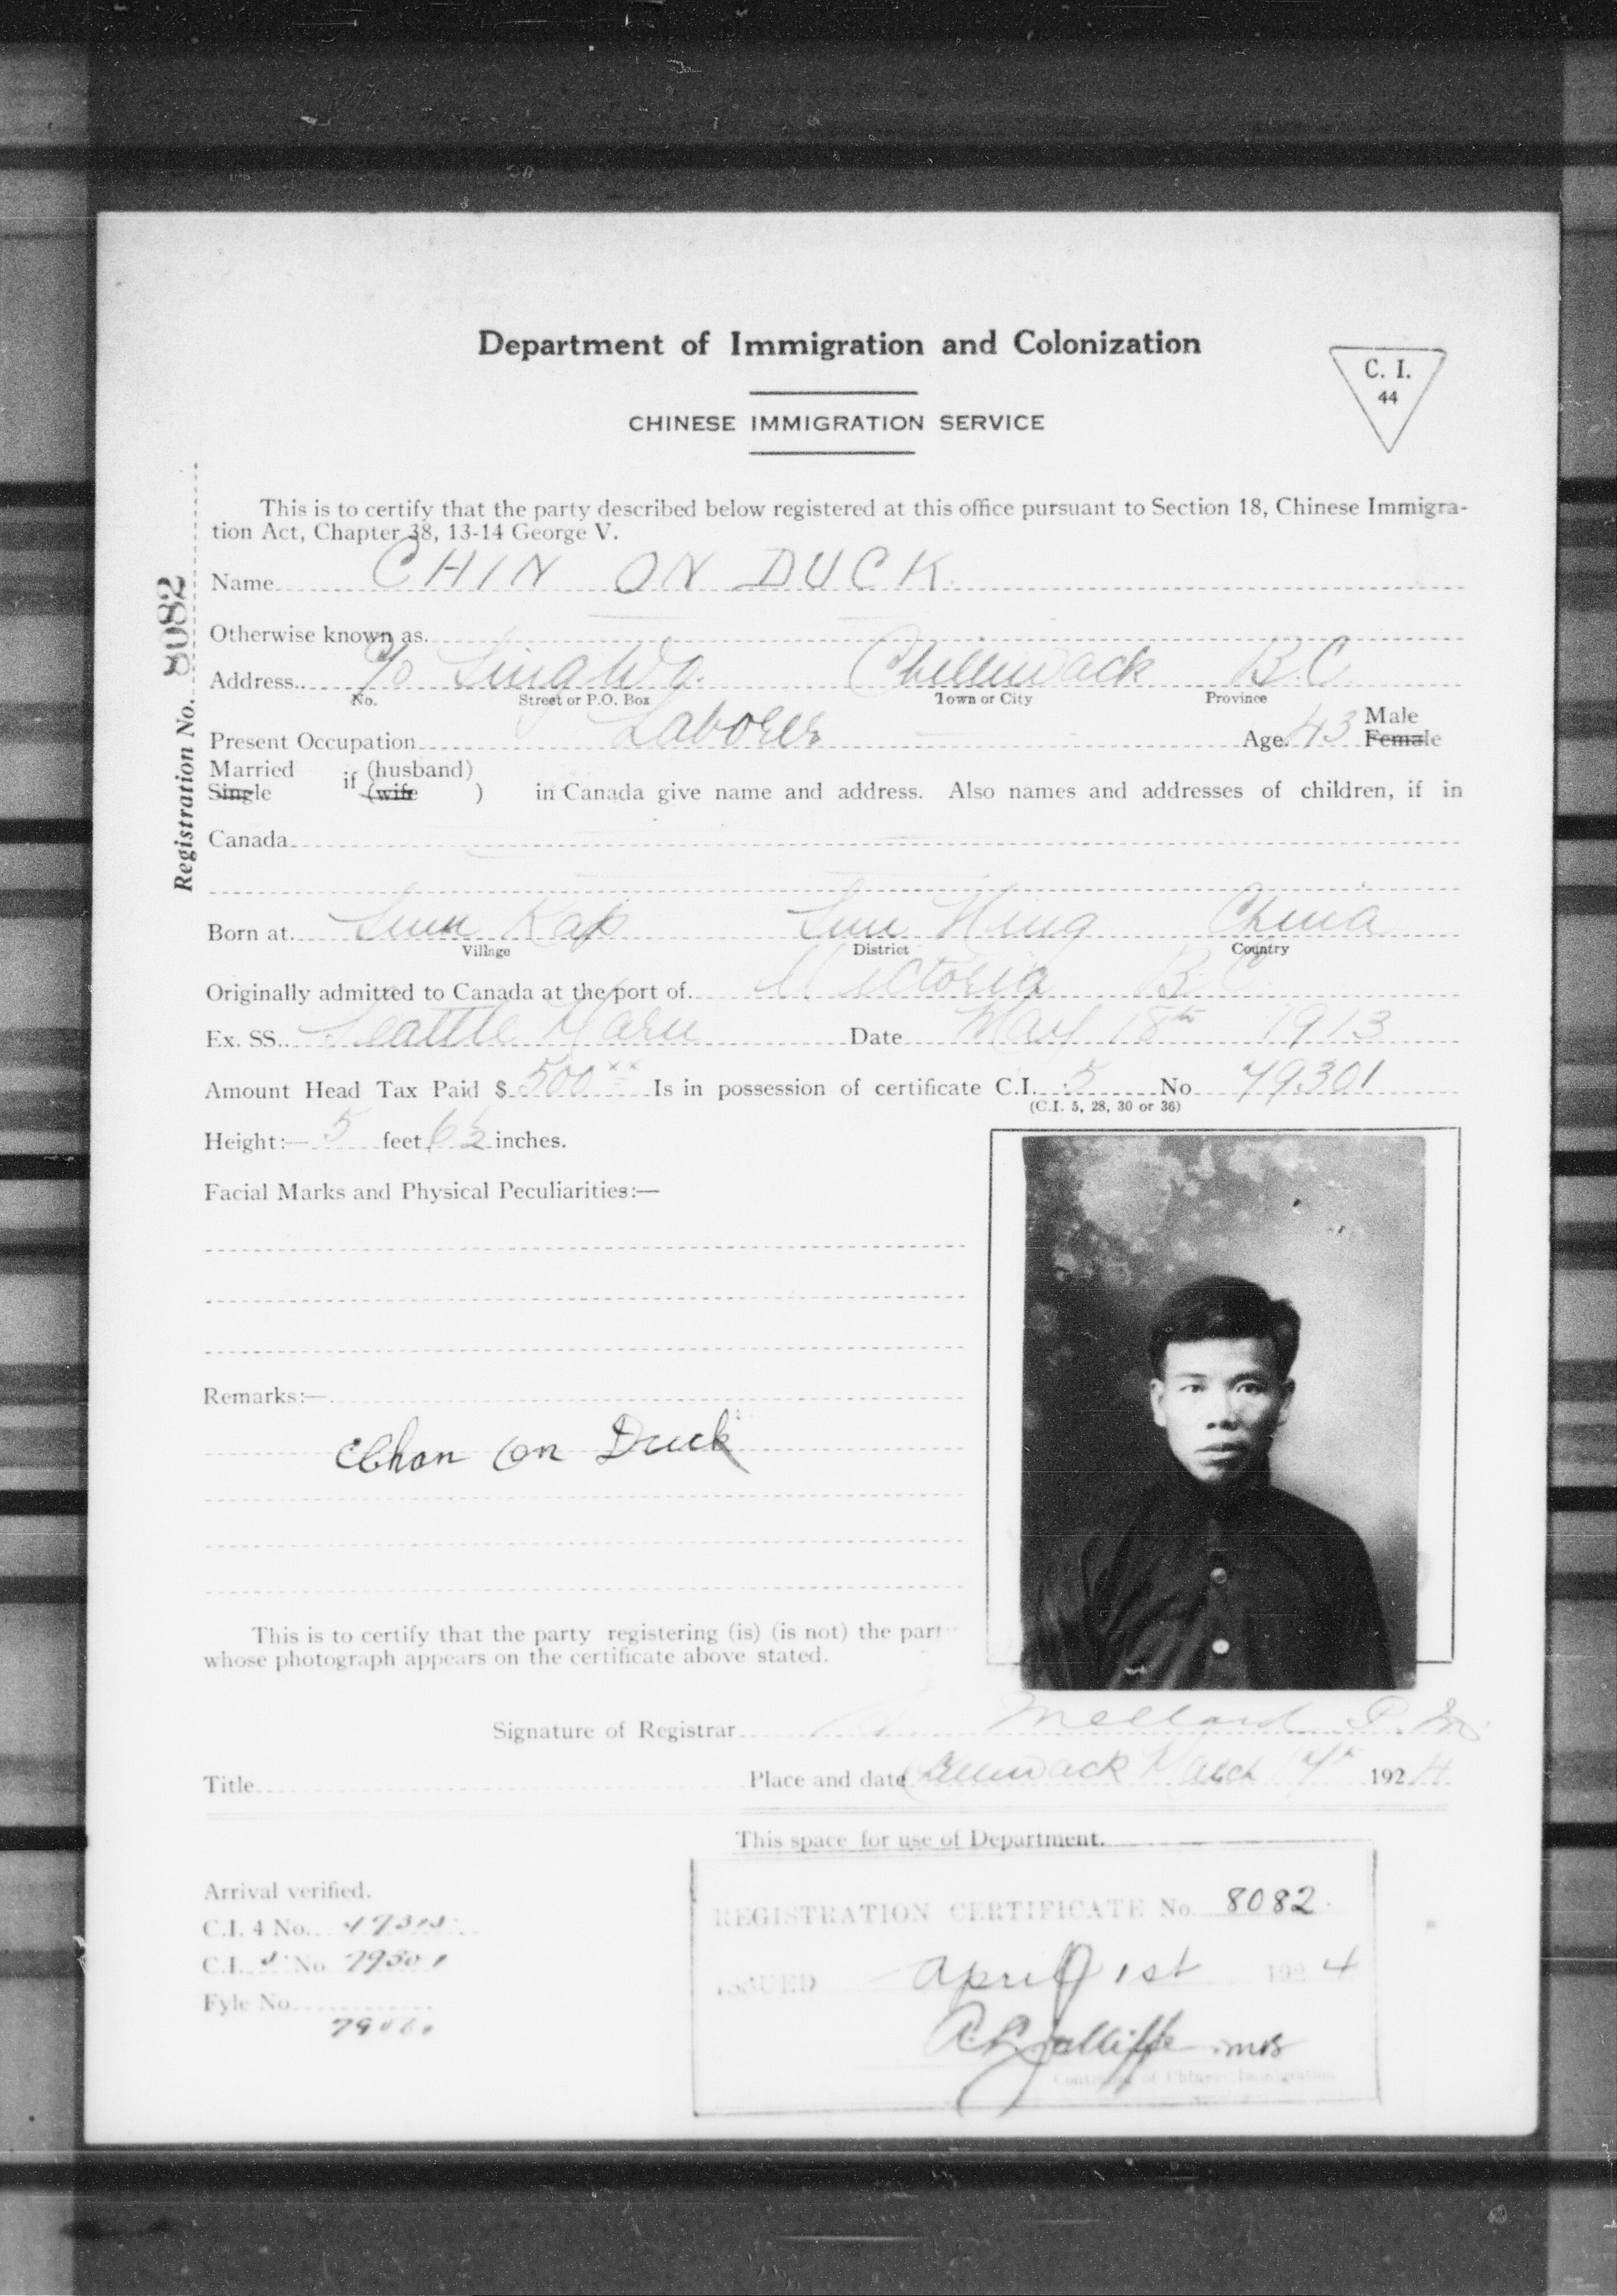 Department of Immigration and Colonization
C. I.
44
CHINESE IMMIGRATION SERVICE
Registration No. 8082
This is to certify that the party described below registered at this office pursuant to Section 18, Chinese Immigra-
tion Act, Chapter 38, 13-14 George V.
Name CHIN ON DUCK
Otherwise known as
Address c/o Sing Wo. Chilliwack B.C.
No. Street or P.O. Box Town or City Province
Present Occupation Laborer Age 43 Male
Female
Married if (husband)
Single (wife ) in Canada give name and address. Also names and addresses of children, if in
Canada
Born at Sun Kap Sun Hing China
Village District Country
Originally admitted to Canada at the port of Victoria B.C.
Ex. SS. Seattle Maru Date May 18th 1913
Amount Head Tax Paid $ 500 xx Is in possession of certificate C.I. 5 No 79301
(C.I. 5, 28, 30 or 36)
Height:— 5 feet 6½ inches.
Facial Marks and Physical Peculiarities:—
Remarks:—
Chan on Duck
This is to certify that the party registering (is) (is not) the part
whose photograph appears on the certificate above stated.
Signature of Registrar Mellard P.M.
Title Place and date Chilliwack March 14th 1924
This space for use of Department.
Arrival verified.
REGISTRATION CERTIFICATE No. 8082
C.I. 4 No.
C.I. 5 No 79301
ISSUED April 1st 1924
Fyle No.
A.L. Jolliffe
Controller of Chinese Immigration